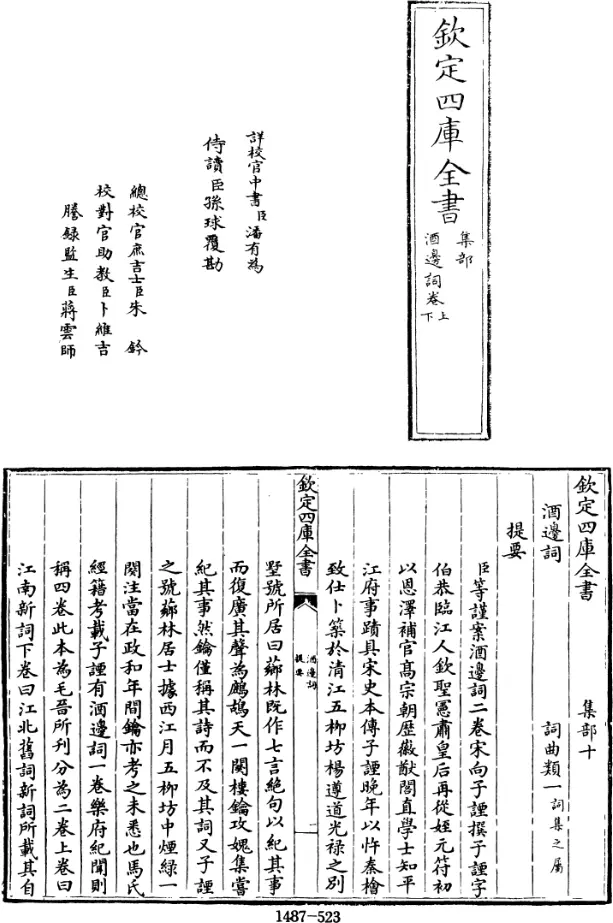 欽定四庫全書
集部
酒邊詞卷上下
詳校官中書臣潘有為
侍讀臣孫球覆勘
總校官庶吉士臣朱鈐
校對官助教臣卜維吉
謄錄監生臣蔣雲師
欽定四庫全書 集部十
酒邊詞 詞曲類一詞集之屬
提要
臣等謹案酒邊詞二卷宋向子諲撰子諲字
伯恭臨江人欽聖憲肅皇后再從姪元符初
以恩澤補官高宗朝歷徽猷閣直學士知平
江府事蹟具宋史本傳子諲晚年以忤秦檜
致仕卜築於清江五柳坊楊遵道光禄之別
欽定四庫全書
酒邊詞
提要
墅號所居曰薌林既作七言絶句以紀其事
而復廣其聲為鷓鴣天一闋樓鑰攻媿集嘗
紀其事然鑰僅稱其詩而不及其詞又子諲
之號薌林居士據西江月五柳坊中煙緑一
闋注當在政和年間鑰亦考之未悉也馬氏
經籍考載子諲有酒邊詞一卷樂府紀聞則
稱四卷此本為毛晉所刊分為二卷上卷曰
江南新詞下卷曰江北舊詞新詞所載其自
1487-523